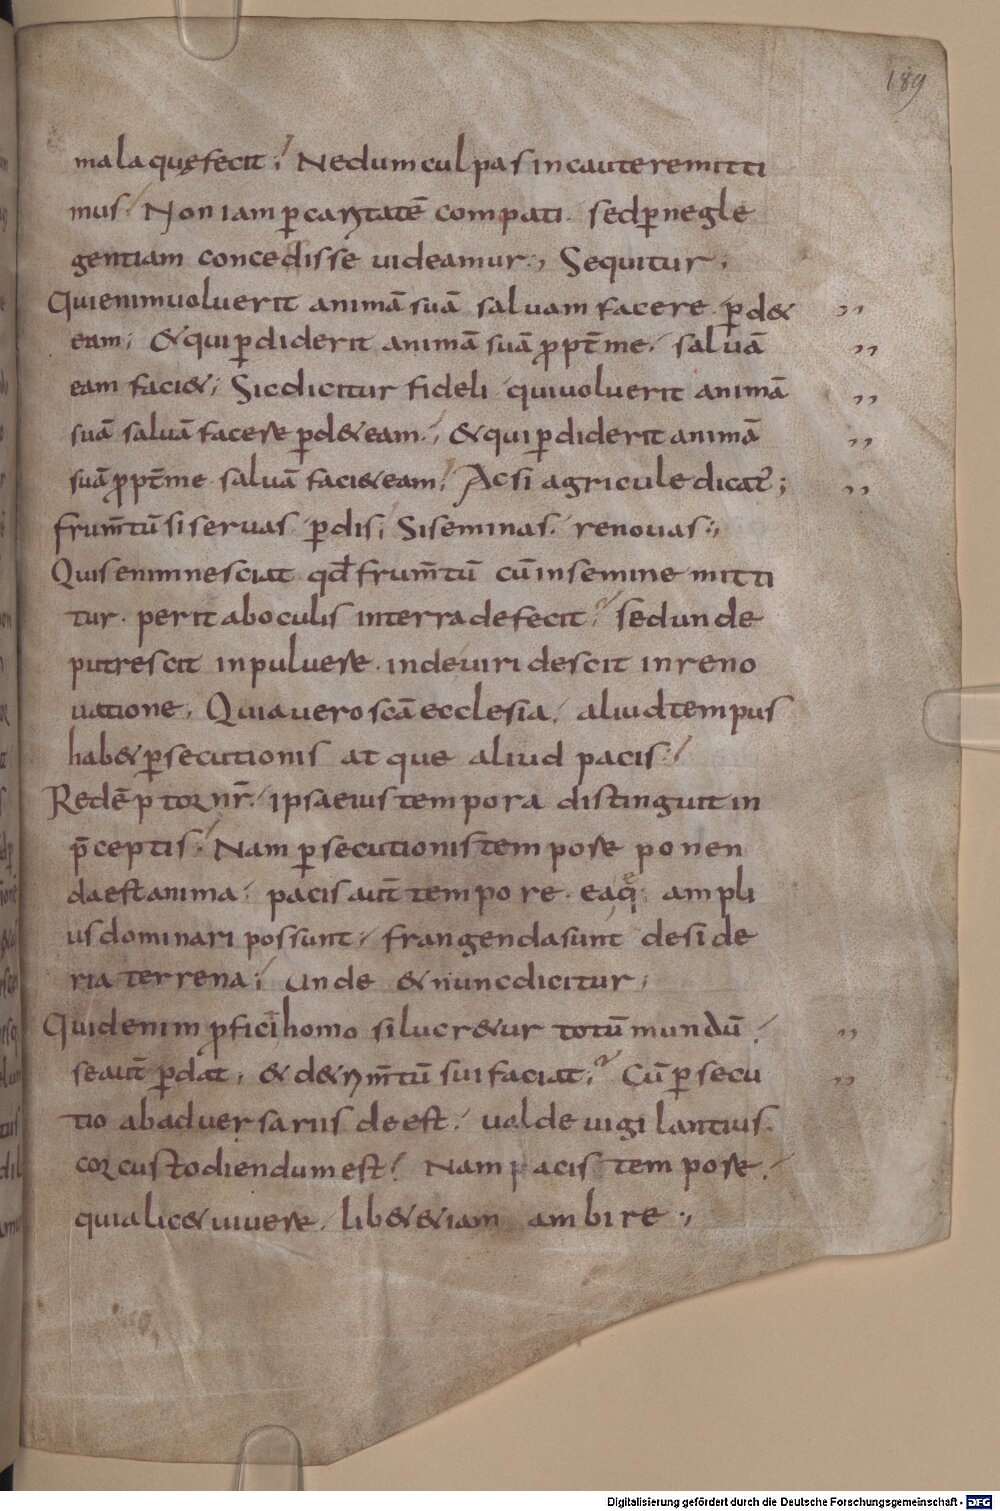 189
mala quę fecit; Ne dum culpas incaute remitti
mus. Non iam p̱ caritatē compati. sed p̱ negle
gentiam concedisse uideamur; Sequitur;
Qui enim uoluerit animā suā saluam facere. p̱d& ,,
eam; & qui p̱diderit animā suā ꝓpt̄ me. saluā ,,
eam faci&; Sic dicitur fideli qui uoluerit animā ,,
suā saluā facere p̱d& eam; & qui p̱diderit animā ,,
suā ꝓpt̄ me saluā faci& eam; Ac si agricule dicat̉; ,,
frum̄tū si seruas p̱dis; Si seminas. renouas;
Quis enim nesciat qđ frum̄tū cū in semine mitti
tur. perit ab oculis in terra defecit; sed unde
putrescit in puluere. inde uiridescit in reno
uatione; Quia uero scā ecclesia, aliud tempus
hab& p̱secutionis atque aliud pacis;
Redēptor nr̄. ipsa eius tempora distinguit in
p̄ceptis; Nam p̱secutionis tempore ponen
da est anima; pacis aut̄ tempore. ea q; ampli
us dominari possunt; frangenda sunt deside
ria terrena; Unde & nunc dicitur;
Quid enim ꝓficit homo si lucr&ur totū mundū ,,
se aut̄ p̱dat, & d&rim̄tū sui faciat; Cū p̱secu ,,
tio ab aduersariis deest. ualde uigilantius
cor custodiendum est; Nam pacis tempore.
quia lic& uiuere. lib& &iam ambire;
Digitalisierung gefördert durch die Deutsche Forschungsgemeinschaft - DFG